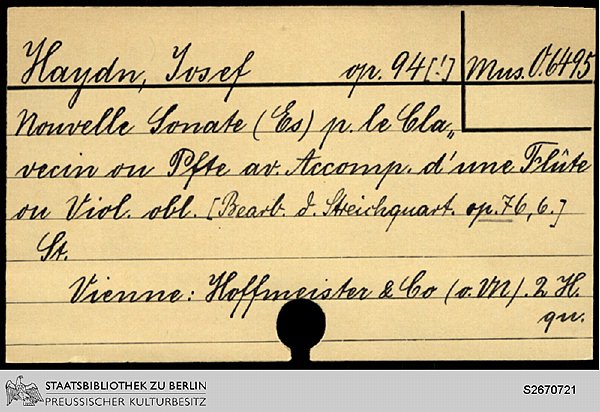 Haydn, Josef op. 94[!] Mus. O.6495
Nouvelle Sonate (Es) p. le Cla„
vecin ou Pfte av. Accomp. d'une Flûte
ou Viol. obl. [Bearb. d. Streichquart. op. 76, 6.]
St.
Vienne: Hoffmeister & Co (o. VN). 2 H.
qu.
STAATSBIBLIOTHEK ZU BERLIN
PREUSSISCHER KULTURBESITZ
S2670721